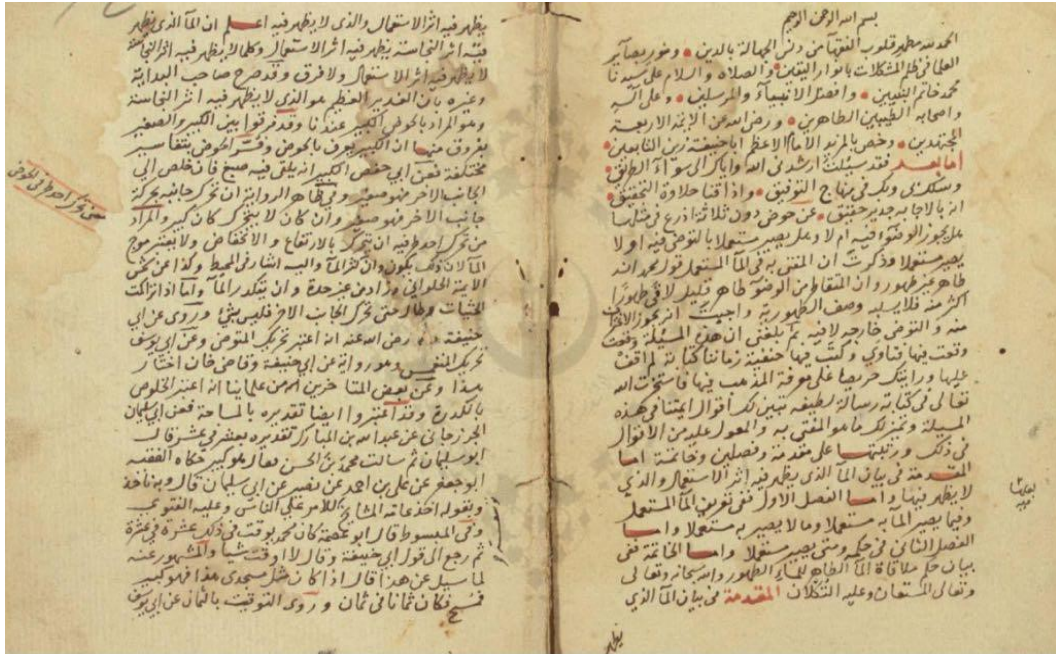 بسم الله الرحمن الرحيم
الحمد لله مطهر قلوب الفقهآ من دنس الجهالة بالدين ومنور بصآير
العلما فى ظلم المشكلات بانوار اليقين والصلاه والسلام على سيدنا
محمد خاتم النبيين وافضل الانبيآء والمرسلين وعلى آله
واصحابه الطيبين الطاهرين ورضى الله عن الايمة الاربعة
المجتهدين وخص بالمزيد الامام الاعظم ابا حنيفة زين التابعين
اما بعد فقد سيلت ارشدنى الله واياك الى سوآء الطريق
وسلك بى وبك فى منهاج التوفيق واذاقنا حلاوة التحقيق
انه بالاجابه جدير حقيق عن حوض دون ثلاثة اذرع فى مثلها
هل يجوز الوضوء فيه ام لا وهل يصير مستعملا بالتوضى فيه او لا
يصير مستعملا وذكرت ان المفتى به فى المآ المستعمل قول محمد انه
طاهر غير طهور وان المتقاطر من الوضوء طاهر قليل لاقى طهورا
اكثر منه فلا يسلبه وصف الطهورية واجبت انه يجوز الاغتراف
منه والتوضى خارجه لا فيه ثم بلغنى ان هذه المسيلة وقعت
وقعت فيها فتاوى وكتب فيها حنفية زماننا كتابة لم اقف
عليها ورايتك حريصا على معرفة المذهب فيها فاستخرت الله
تعالى فى كتابة رسالة لطيفه تبين لك اقوال ايمتنا فى هذه
المسيلة وتميز لك ما هو المفتى به والمعول عليه من الاقوال
فى ذلك ورتبتها على مقدمة وفصلين وخاتمة اما
المقدمة فى بيان المآ الذى يظهر فيه اثر الاستعمال والذى
لا يظهر فيها واما الفصل الاول ففى تعريف المآ المستعمل
وفيما يصير المآ به مستعملا وما لا يصير به مستعملا واما
الفصل الثانى فى حكمه ومتى يصير مستعملا واما الخاتمة ففى
بيان حكم ملاقاة المآ الطاهر للماء الطهور والله سبحانه وتعالى
وتعالى المستعان وعليه التكلان المقدمة فى بيان المآ الذى
يظهر
يظهر فيه اثر الاستعمال والذى لا يظهر فيه اعلم ان المآ الذى يظهر
فيه اثر النجاسة يظهر فيه اثر الاستعمال وكلما لا يظهر فيه اثر النجاسة
لا يظهر فيه اثر الاستعمال ولا فرق وقد صرح صاحب البداية
وغيره بان الغدير العظيم هو الذى لا يظهر فيه اثر النجاسة
وهو المراد بالحوض الكبير عندنا وقد فرقوا بين الكبير والصغير
بفروق منها ان الكبير يعرف بالحوض وفسر الحوض بتفاسير
مختلفة فعن ابى حفص الكبير انه يلقى فيه صبغ فان خلص الى
الجانب الاخر فهو صغير وفى ظاهر الرواية ان تحرك جانبه بحركة
جانب الاخر فهو صغير وان كان لا يتحرك كان كبير والمراد
من تحرك احد طرفيه ان يتحرك بالارتفاع والانخفاض ولا يعتبر موج
المآ لان ذلك يكون وان كثر المآ واليه اشار فى المحيط وكذا عن شمس
الايمة الحلوانى وزاد من عنده وان يتكدر المآ واما اذا تراكمت
وطال حتى تحرك الجانب الاخر فليس بشئ وروى عن ابى
حنيفة رضى الله عنه انه اعتبر تحريك المتوضى وعن ابى يوسف
تحريك المغتسل وهو رواية عن ابى حنيفة وقاضى خان اختار
هذا وعن بعض المتاخرين من علماينا انه اعتبر الخلوص
بالكدرة وقد اعتبروا ايضا تقديره بالمساحة فعن ابى سليمان
الجوزجانى عن عبد الله بن المبارك تقديره بعشر فى عشر قال
ابو سليمان ثم سالت محمد بن الحسن فقال هو كبير حكاه الفقيه
ابو جعفر عن على بن احمد عن نصير عن ابى سليمان قال وبه ناخذ
وبقوله اخذ عامة المشايخ للامر على الناس وعليه الفتوى
وفى المبسوط قال ابو عصمة كان محمد يوقت فى ذلك عشرة فى عشرة
ثم رجع الى قول ابى حنيفة وقال لا اوقت شيا والمشهور عنه
لما سيل عن هذا قال اذا كان مثل مسجدى هذا فهو كبير
فمسح فكان ثمانا فى ثمان وروى التوقيت بالثمان عن ابى يوسف